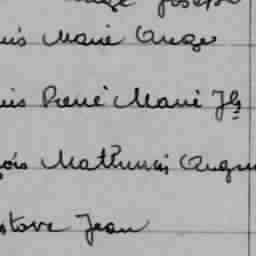 Joseph
uis Marie Ange
uis Pierre Marie Jh
çois Mathurin Augu
stave Jean